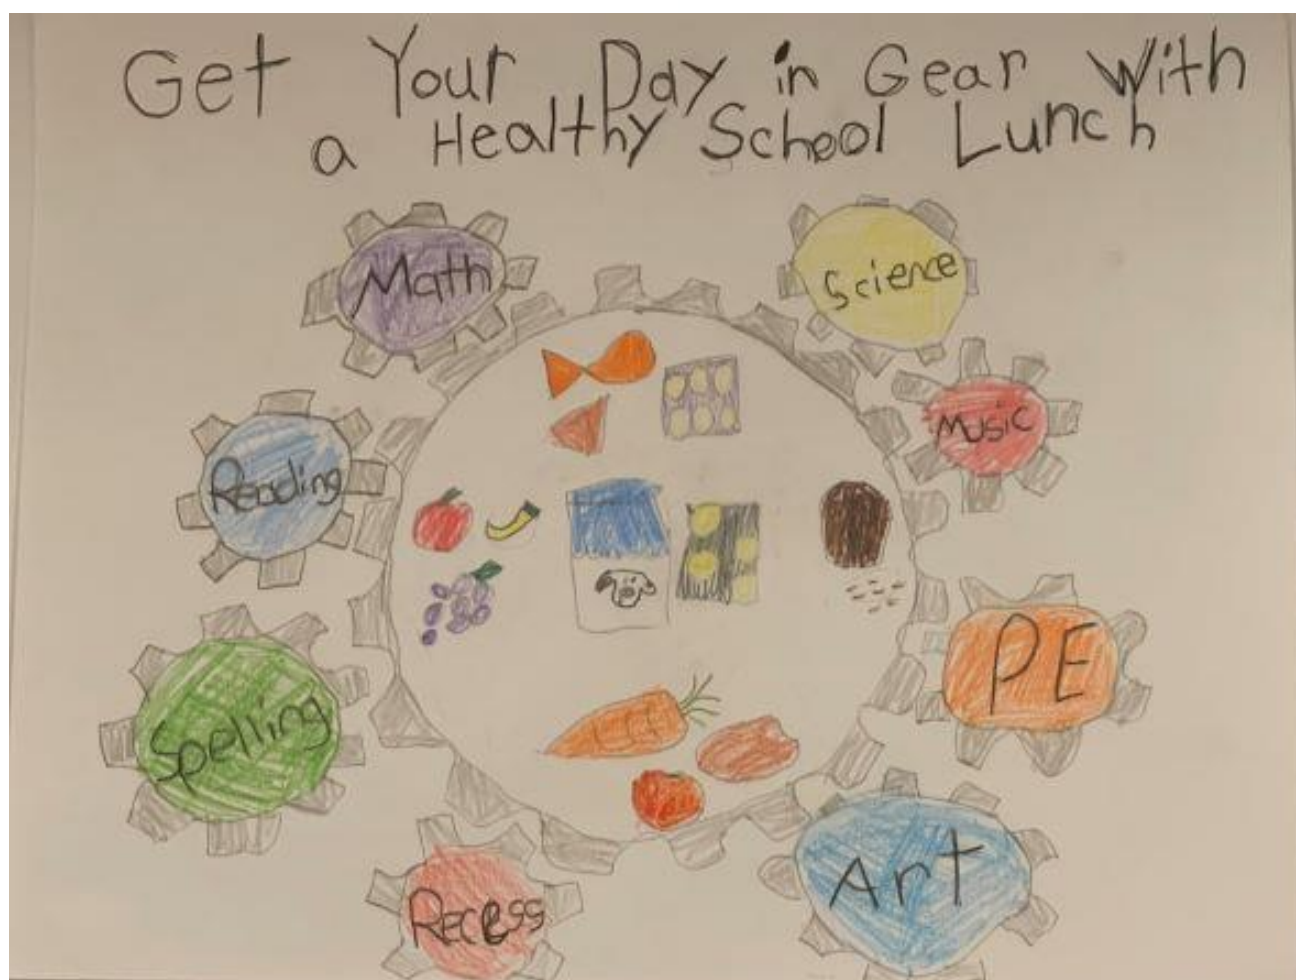 Get Your Day in Gear With
a Healthy School Lunch
Math
Science
Music
Reading
PE
Spelling
Art
Recess